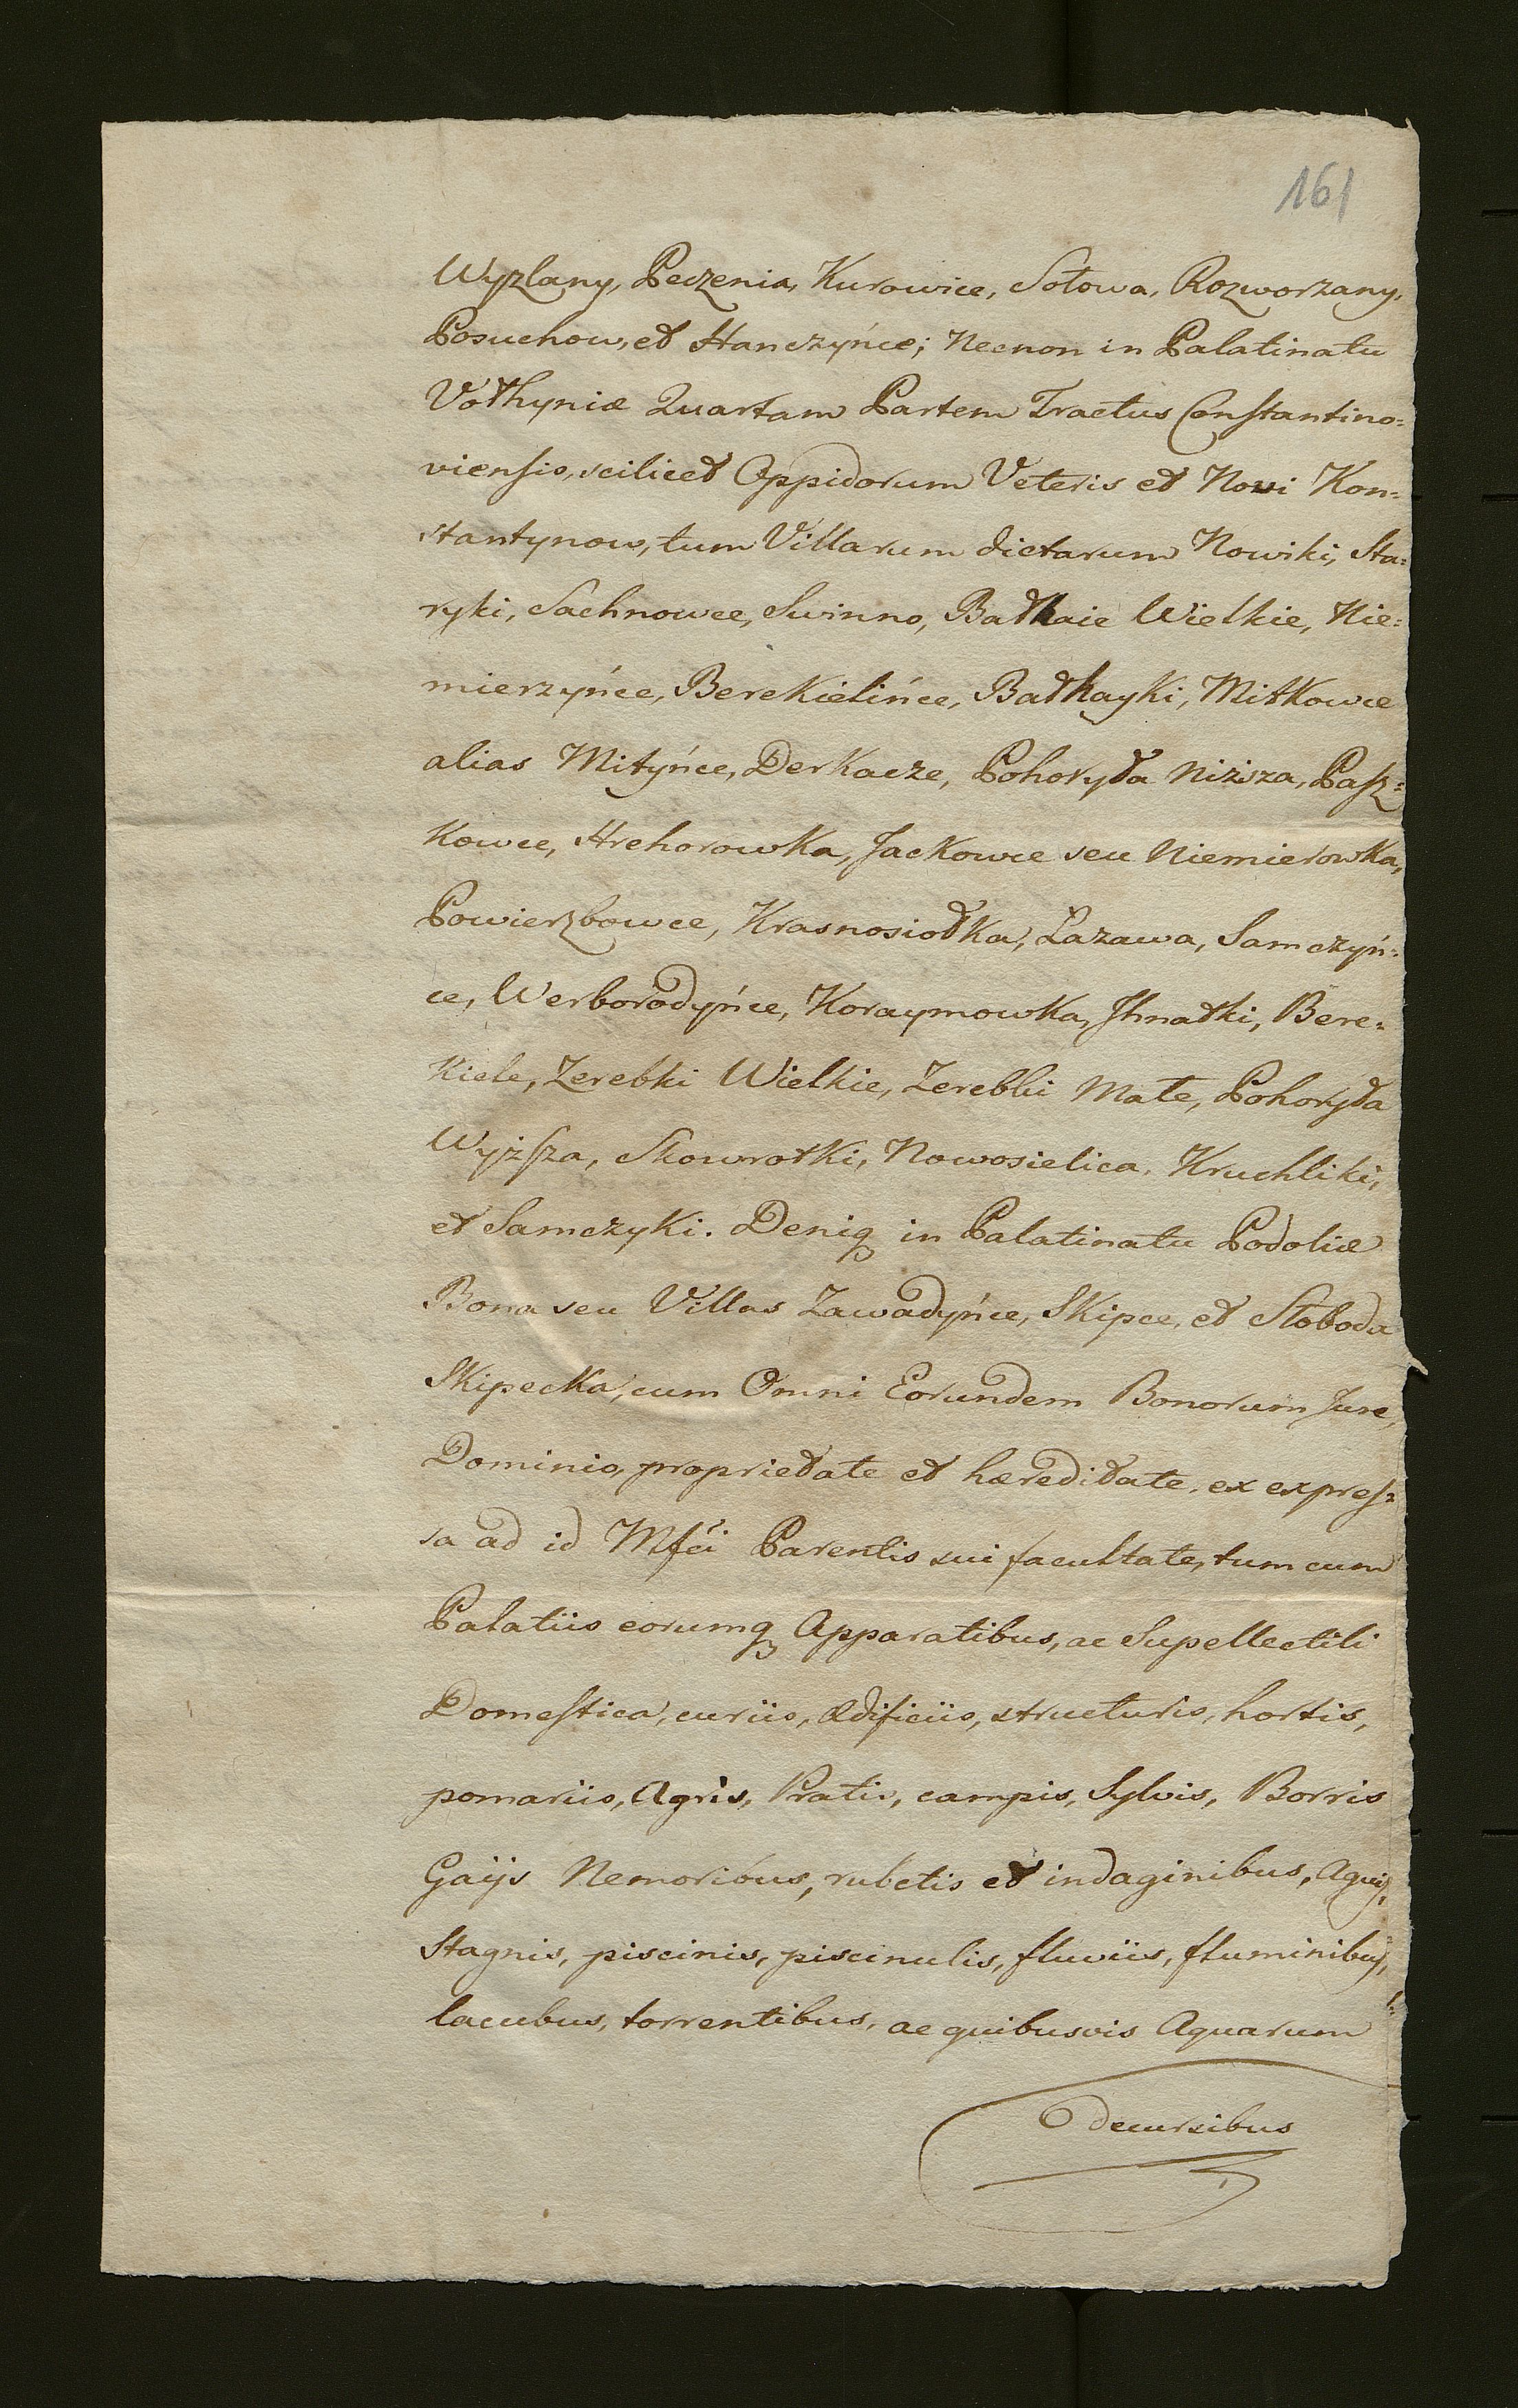 161
Wyzlany, Peczenia, Kurowice, Sołowa, Rozworzany,
Posuchow, et Hanczyńce; Necnon in Palatinatu
Vołhyniæ Quartam Partem Tractus Constantino=
viensis, scilicet Oppidorum Veteris et Novi Kon=
stantynow, tum Villarum dictarum Nowiki, Sta=
ryki, Sachnowce, Swinno, Bałhaie Wielkie, Nie=
mierzyńce, Berekielińce, Bałhayki, Mitkowce
alias Mityńce, Derkacze, Pohoryła Niższa, Pasz=
kowce, Hrehorowka, Jackowce seu Niemierowka,
Powierzbowce, Krasnosiołka, Łazawa, Samczyń=
ce, Werborodyńce, Koraymowka, Ihnatki, Bere=
kiele, Zerebki Wielkie, Zerebki Małe, Pohoryła
Wyższa, Skowrotki, Nowosielica, Kruchliki,
et Samczyki. Deniq in Palatinatu Podoliæ
Bona seu Villas Zawadyńce, Skipce, et Słoboda
Skipecka, cum Omni Eorundem Bonorum Jure,
Dominio, proprietate et hæreditate, ex expres=
sa ad id Mfci Parentis sui facultate, tum cum
Palatiis eorumq Apparatibus, ac Supellectili
Domestica, curiis, ædificiis, structuris, hortis,
pomariis, Agris, Pratis, campis, Sylvis, Borris
Gaijs Nemoribus, rubetis et indaginibus, Aquis,
Stagnis, piscinis, piscinulis, fluviis, fluminibus,
lacubus, torrentibus, ac quibusvis Aquarum
decursibus